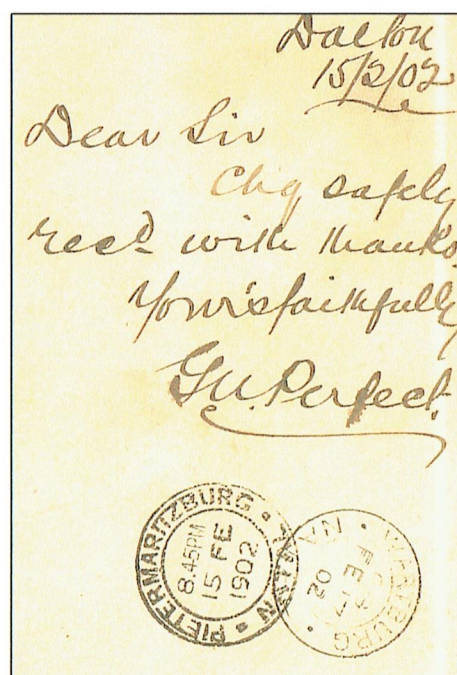 Dalton
15/2/02
Dear Sir
Chq safely
recd with thanks
Yours faithfully
G.W. Perfect
PIETERMARITZBURG · NATAL
8.45PM
15 FE
1902
WARTBURG · NA
FE 17
02